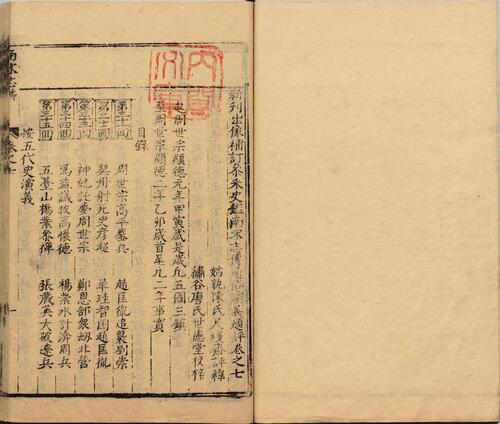 新刊出像補訂參采史鑑南宋志傳通俗演義題評卷之七
姑孰陳氏尺蠖齋評釋
繡谷唐氏世德堂校梓
起周世宗顯德元年甲寅歲是歲凡五國三鎮
至周世宗顯德二年乙卯歲首尾凡二年事實
目錄
第三十一回 周世宗高平鏖兵 趙匡胤追襲劉崇
第三十二回 契丹射死史彥超 華 智困趙匡胤
第三十三回 神 託夢周世宗 鄭恩部眾劫北營
第三十四回 馮益議救高懷德 楊業水計渰周兵
第三十五回 五臺山楊業參禪 張藏英大破遼兵
按五代史演義
卷之七
一